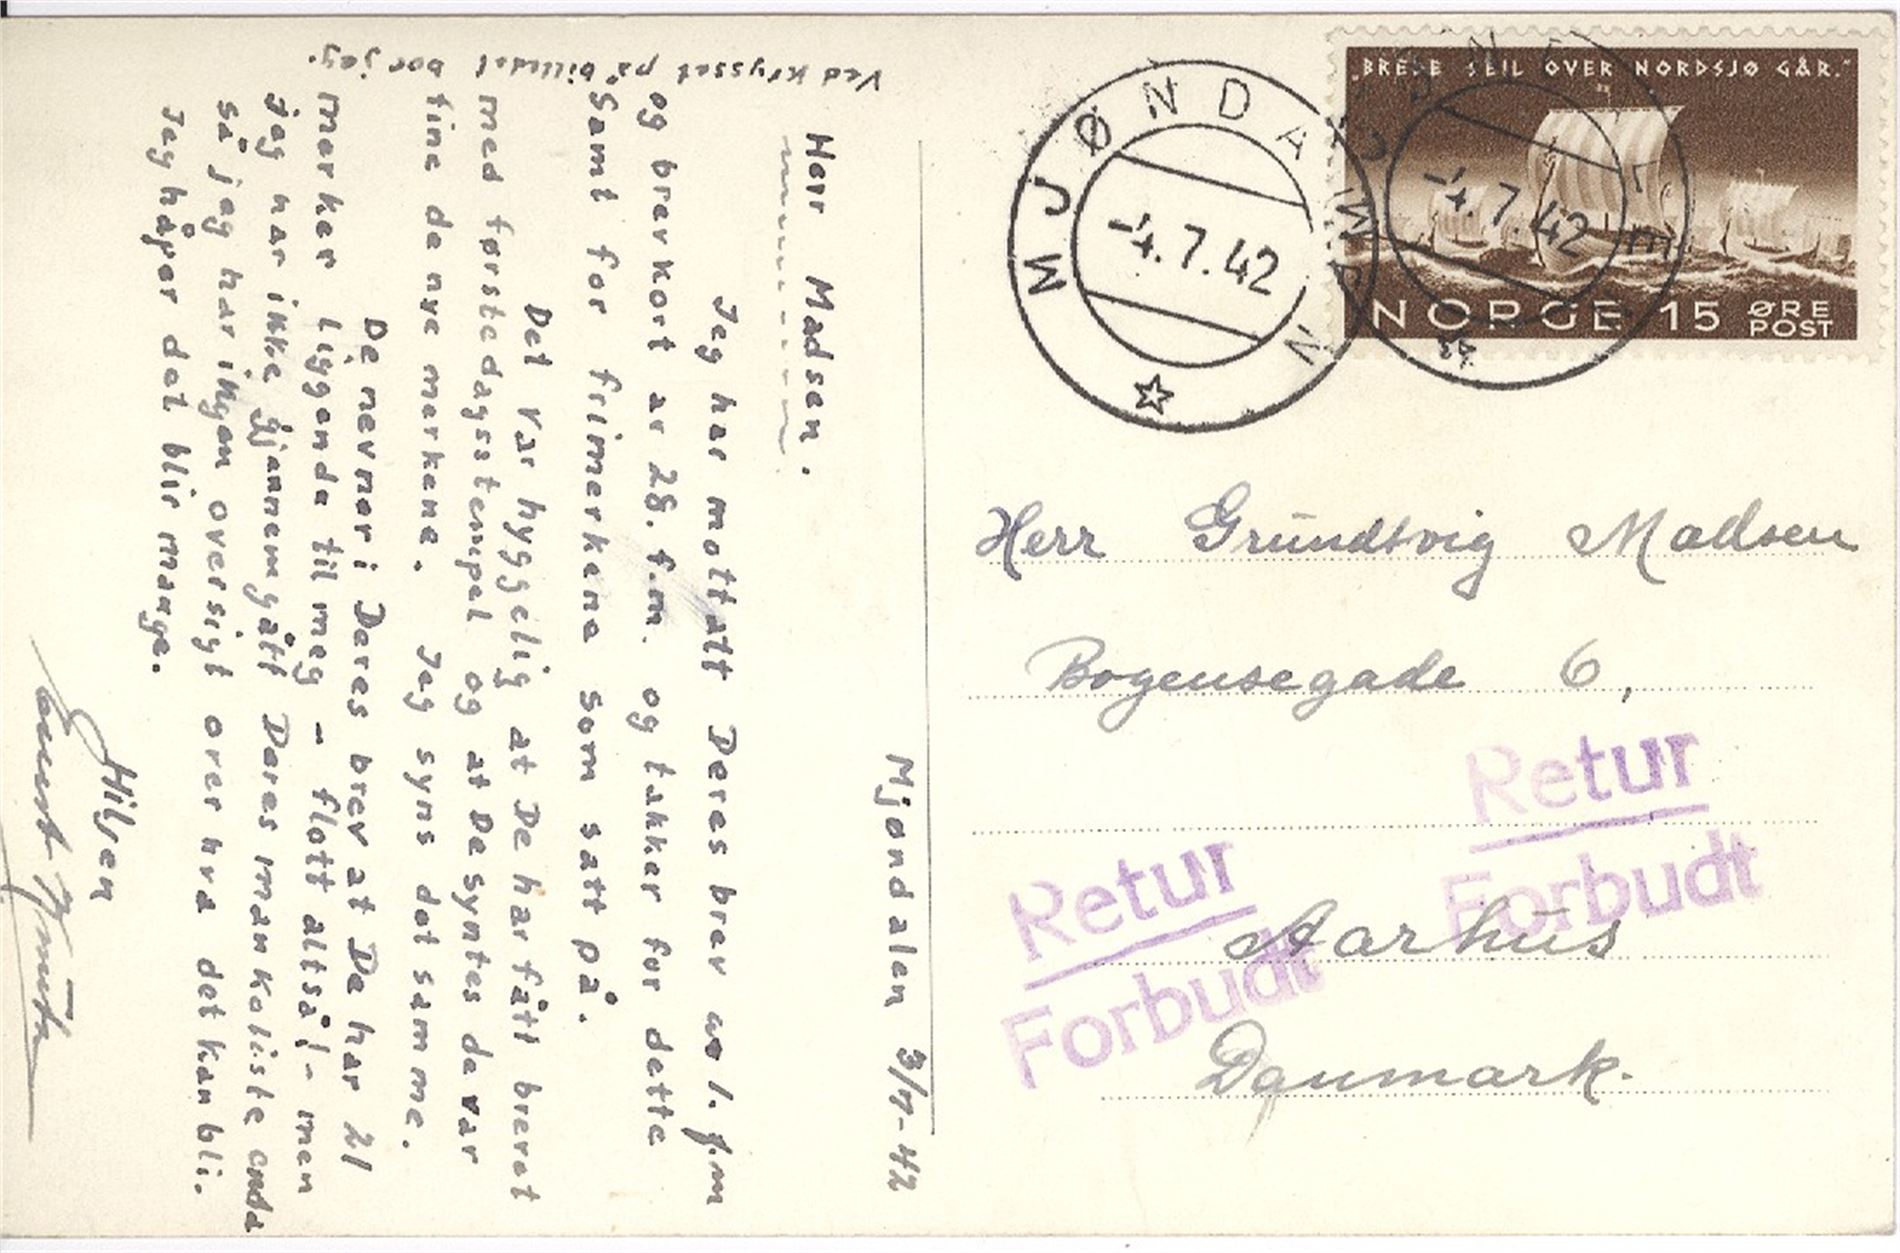 Mjøndalen 3/7-42
Herr Madsen.
Jeg har mottatt Deres brev av 1. f.m
og brevkort av 28. f.m. og takker for dette
samt for frimerkene som satt på.
Det var hyggelig at De har fått brevet
med førstedagsstempel og at De syntes de var
fine de nye merkene. Jeg syns det samme.
De nevner i Deres brev at De har 21
merker liggende til meg - flott altså! - men
jeg har ikke gjennemgått Deres mankoliste enda
så jeg har ingen oversigt over hva det kan bli.
Jeg håper det blir mange.
Hilsen
Ved krysset på billedet bor jeg.
MJØNDALEN
-4.7.42
MJØNDALEN
-4.7.42
"BREDE SEIL OVER NORDSJØ GÅR."
NORGE 15 ØRE
POST
Herr Grundtvig Madsen
Bogensegade 6,
Aarhus
Danmark.
Retur
Forbudt
Retur
Forbudt